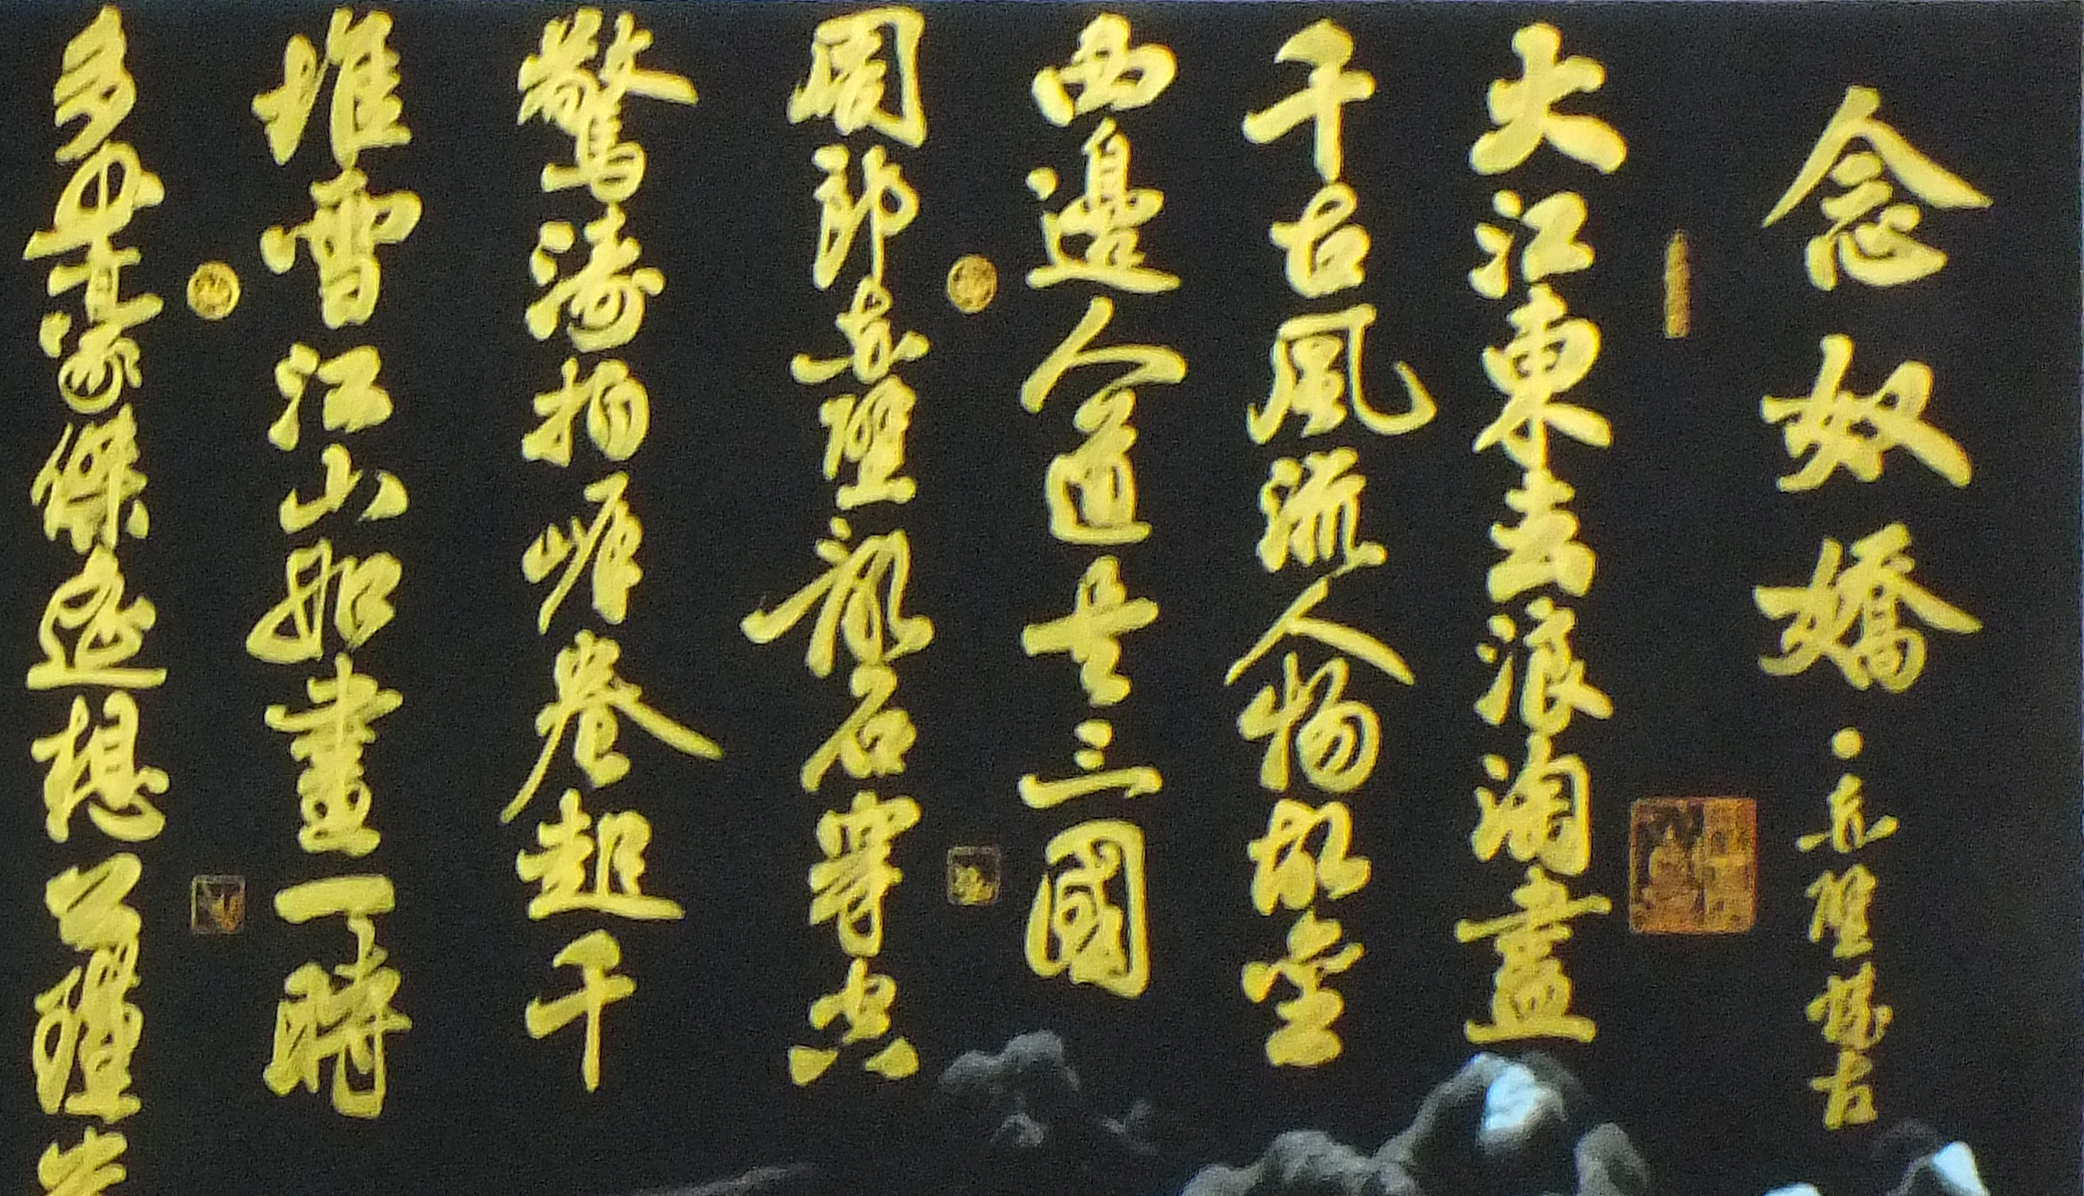 念奴嬌·赤壁懷古
大江東去浪淘盡
千古風流人物故垒
西邊人道是三國
周郎赤壁亂石穿空
驚濤拍岸卷起千
堆雪江山如畫一時
多少豪傑遙想公瑾